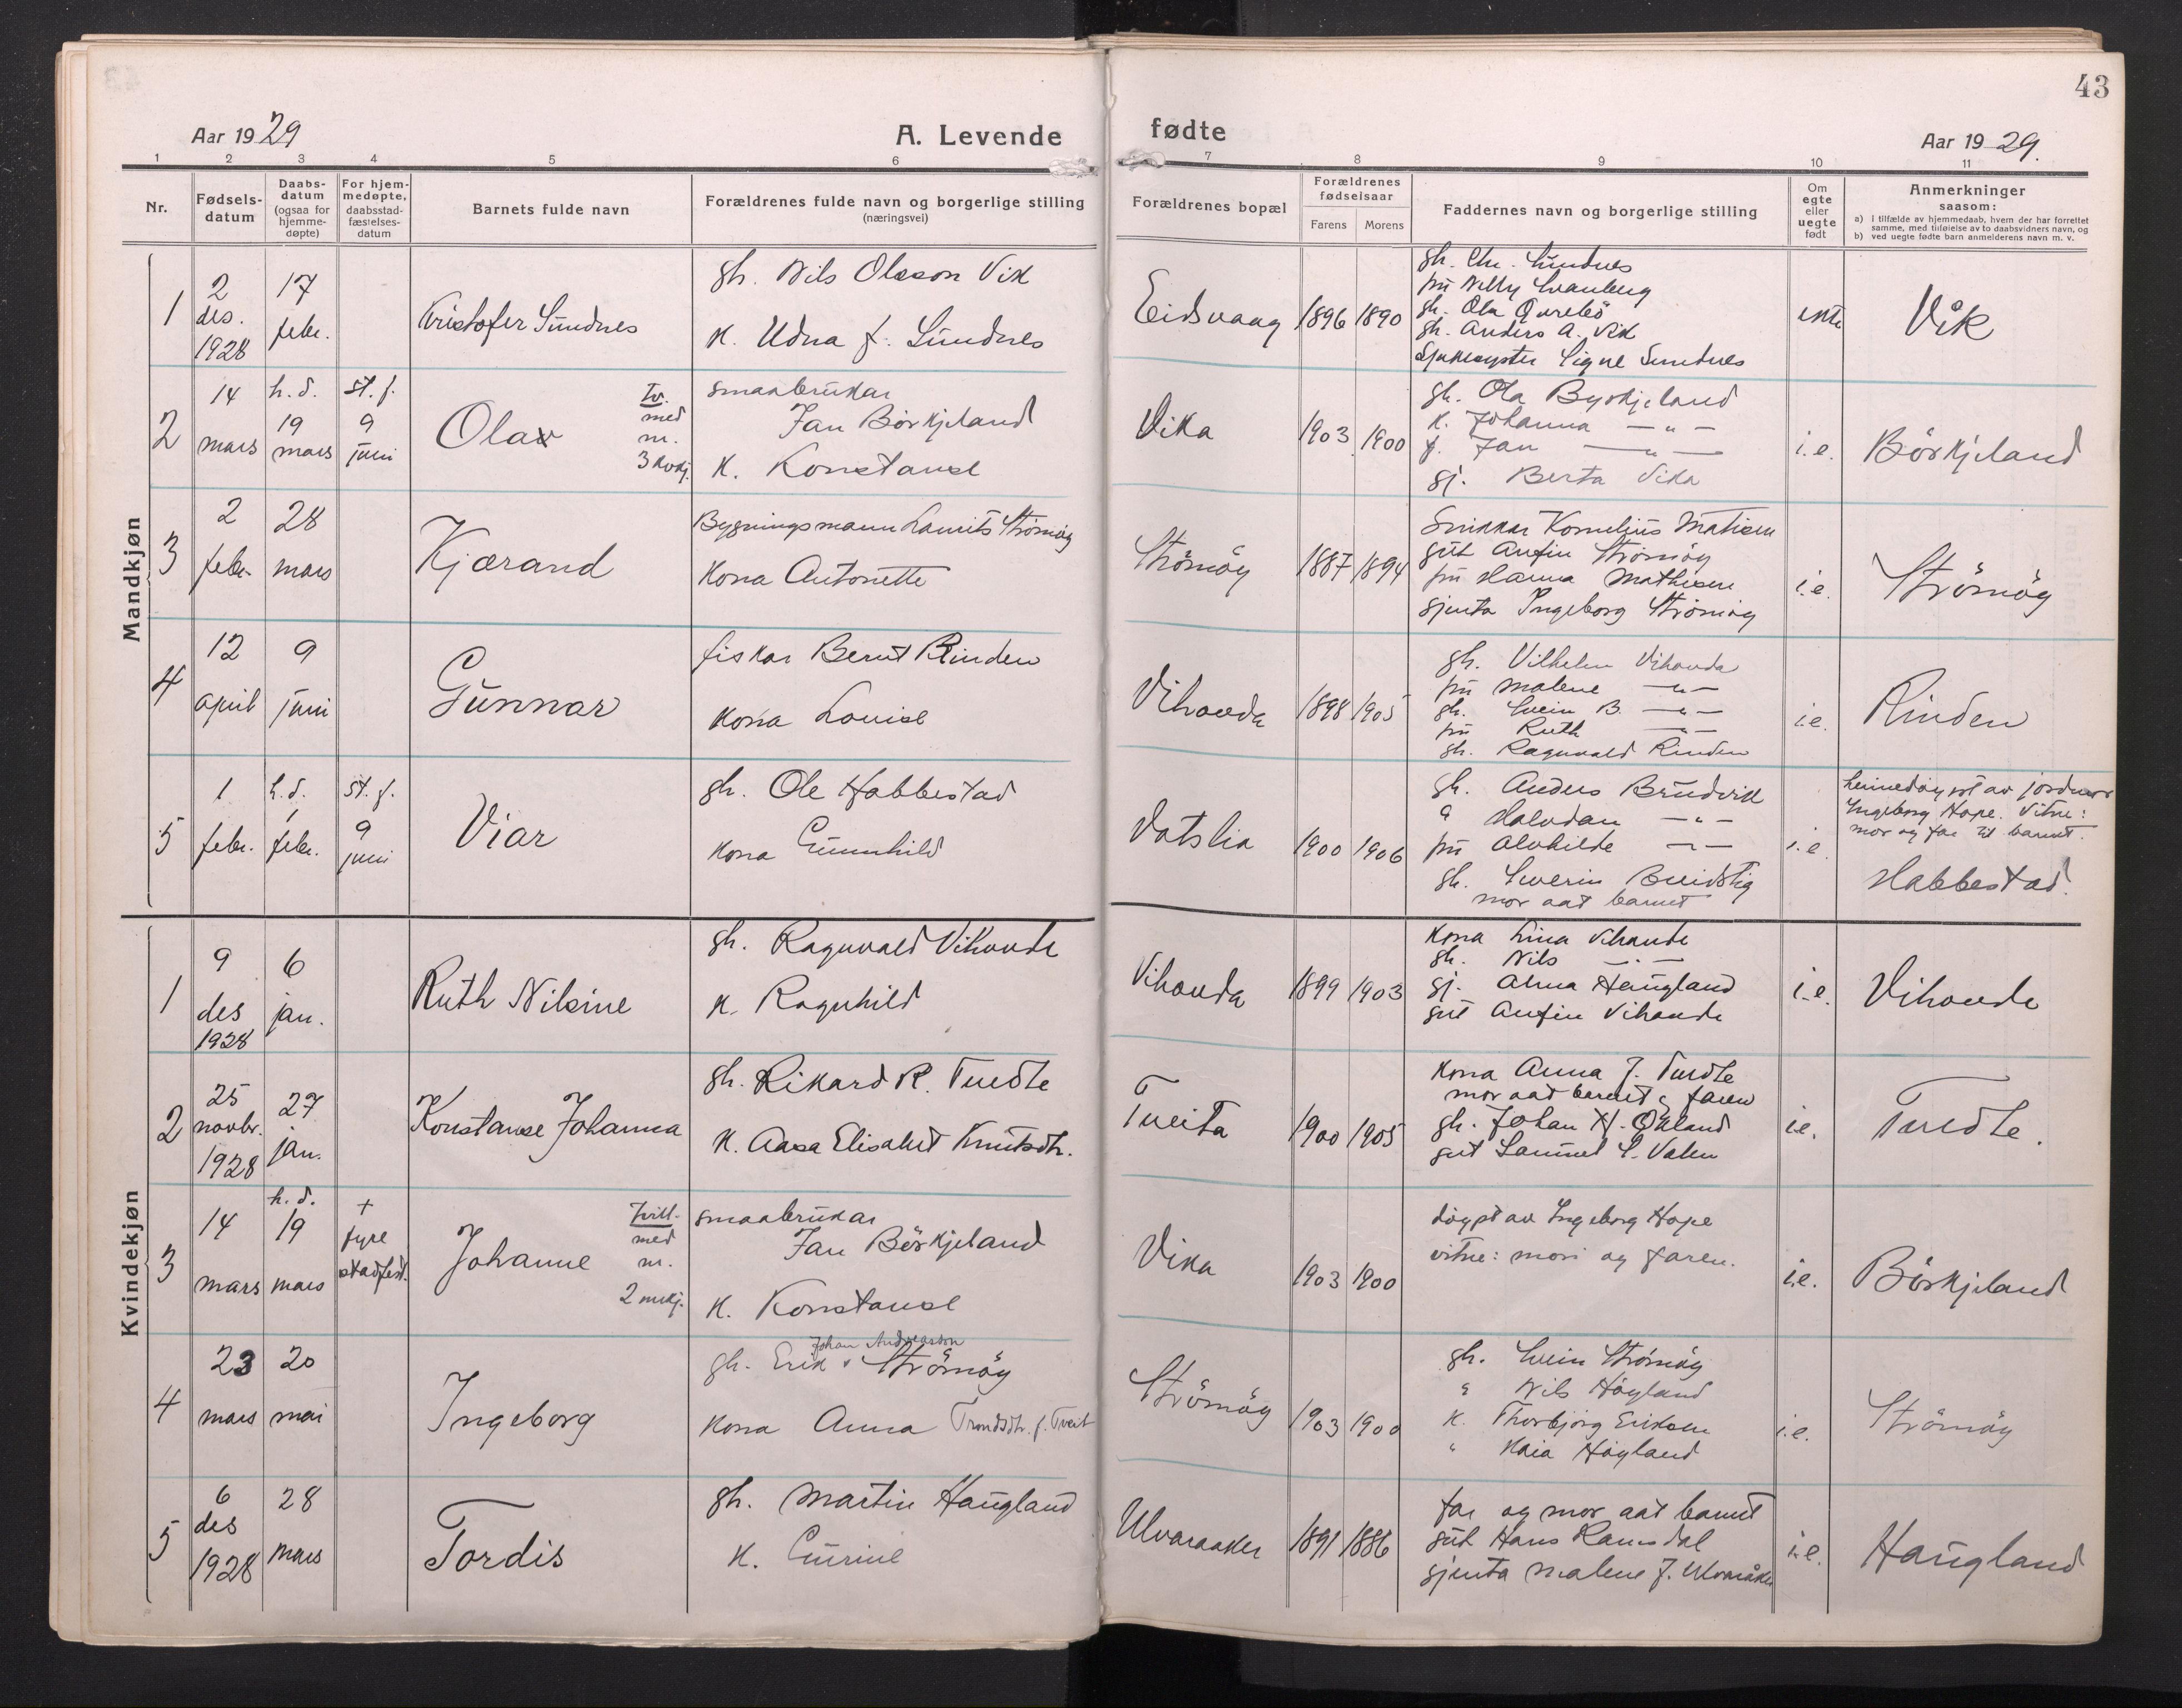 43
Aar 1929
A. Levende fødte
Aar 1929.
1 2 3 4 5 6 7 8 9 10 11
Nr.
Fødsels-datum
Daabs-datum (ogsaa for hjemme-døpte)
For hjem-medøpte, daabsstad-fæstelses-datum
Barnets fulde navn
Forældrenes fulde navn og borgerlige stilling (næringsvei)
Forældrenes bopæl
Forældrenes fødselsaar
Farens Morens
Faddernes navn og borgerlige stilling
Om egte eller uegte født
Anmerkninger saasom:
a) i tilfælde av hjemmedaab, hvem der har forrettet samme, med tilføielse av to daabsvidners navn, og
b) ved uegte fødte barn anmelderens navn m. v.
Mandkjøn
1
2 des. 1928
17 febr.
Kristofer Sundnes
gh. Nils Olsson Vik
k. Udna f. Sundnes
Eidsvaag
1896 1890
gh. Chr. Sundnes
fru Nelly Svanberg
gh. Ola Qvrebö
gh. Anders A. Vik
Sjukesyster Signe Sundnes
ekte
Vik
2
14 mars
h. d. 19 mars
st. f. 9 juni
Olav
tv. med nr. 3 kvkj.
smaabrukar
Jan Börkjeland
k. Konstanse
Vika
1903 1900
gh. Ola Byrkjeland
k. Johanna — " —
g. Jan — " —
gj. Berta Vika
i.e.
Börkjeland
3
2 febr.
28 mars
Kjærand
Bygningsmann Laurits Strömöy
Kona Antonette
Strömöy
1887 1894
Snikkar Kornelius Matisen
gut Anfin Strömöy
fru Hanna Mathisen
gjenta Ingeborg Strömöy
i.e.
Strömöy
4
12 april
9 juni
Gunnar
fiskar Bernt Rinden
kona Louise
Vihovda
1898 1905
gh. Vilhelm Vihovda
fru Malene — " —
gh. Svein B. — " —
fru Ruth — " —
gh. Ragnvald Rinden
i.e.
Rinden
5
1 febr.
h. d. 1 febr.
st. f. 9 juni
Viar
gh. Ole Habbestad
kona Gunnhild
Vatslia
1900 1906
gh. Anders Brudvik
" Halvdan — " —
fru Alvhilde — " —
gh. Severin Breidstig
mor aat barnet
i.e.
heimedöypt av jordmor
Ingeborg Hope. Vitne:
mor og far til barnet.
Habbestad.
Kvindekjøn
1
9 des 1928
6 jan.
Ruth Nilsine
gh. Ragnvald Vihovde
k. Ragnhild
Vihovda
1899 1903
kona Lina Vihovde
gh. Nils — " —
gj. Alma Haugland
gut Anfin Vihovde
i.e.
Vihovde
2
25 novbr. 1928
27 jan.
Konstanse Johanna
gh. Rikard R. Tvedte
k. Aasa Elisabet Knutsdtr.
Tveita
1900 1905
kona Anna J. Tvedte
mor aat barnet og faren
gh. Johan H. Økland
gut Samuel S. Valen
i.e.
Tvedte.
3
14 mars
h. d. 19 mars
+ fyre stadfest.
Johanne
Tvill. med nr. 2 mkj.
smaabrukar
Jan Börkjeland
k. Konstanse
Vika
1903 1900
döypt av Ingeborg Hope
vitne: mori og faren.
i.e.
Börkjeland
4
23 mars
20 mai
Ingeborg
Johan Andreasson
gh. Erik Strömöy
kona Anna Trondsdtr. f. Tveit
Strömöy
1903 1900
gh. Svein Strömöy
" Nils Höyland
k. Thorbjörg Eriksen
" Kaia Höyland
i.e.
Strömöy
5
6 des 1928
28 mars
Tordis
gh. Martin Haugland
k. Gurine
Ulvaraaker
1891 1886
far og mor aat barnet
gut Hans Ramsdal
gjenta Malene J. Ulvaråker
i.e.
Haugland